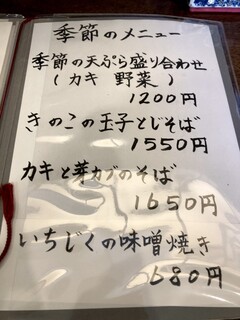 季節のメニュー
季節の天ぷら盛り合わせ
(カキ 野菜)
1200円
きのこの玉子とじそば
1550円
カキと芽カブのそば
1650円
いちじくの味噌焼き
680円